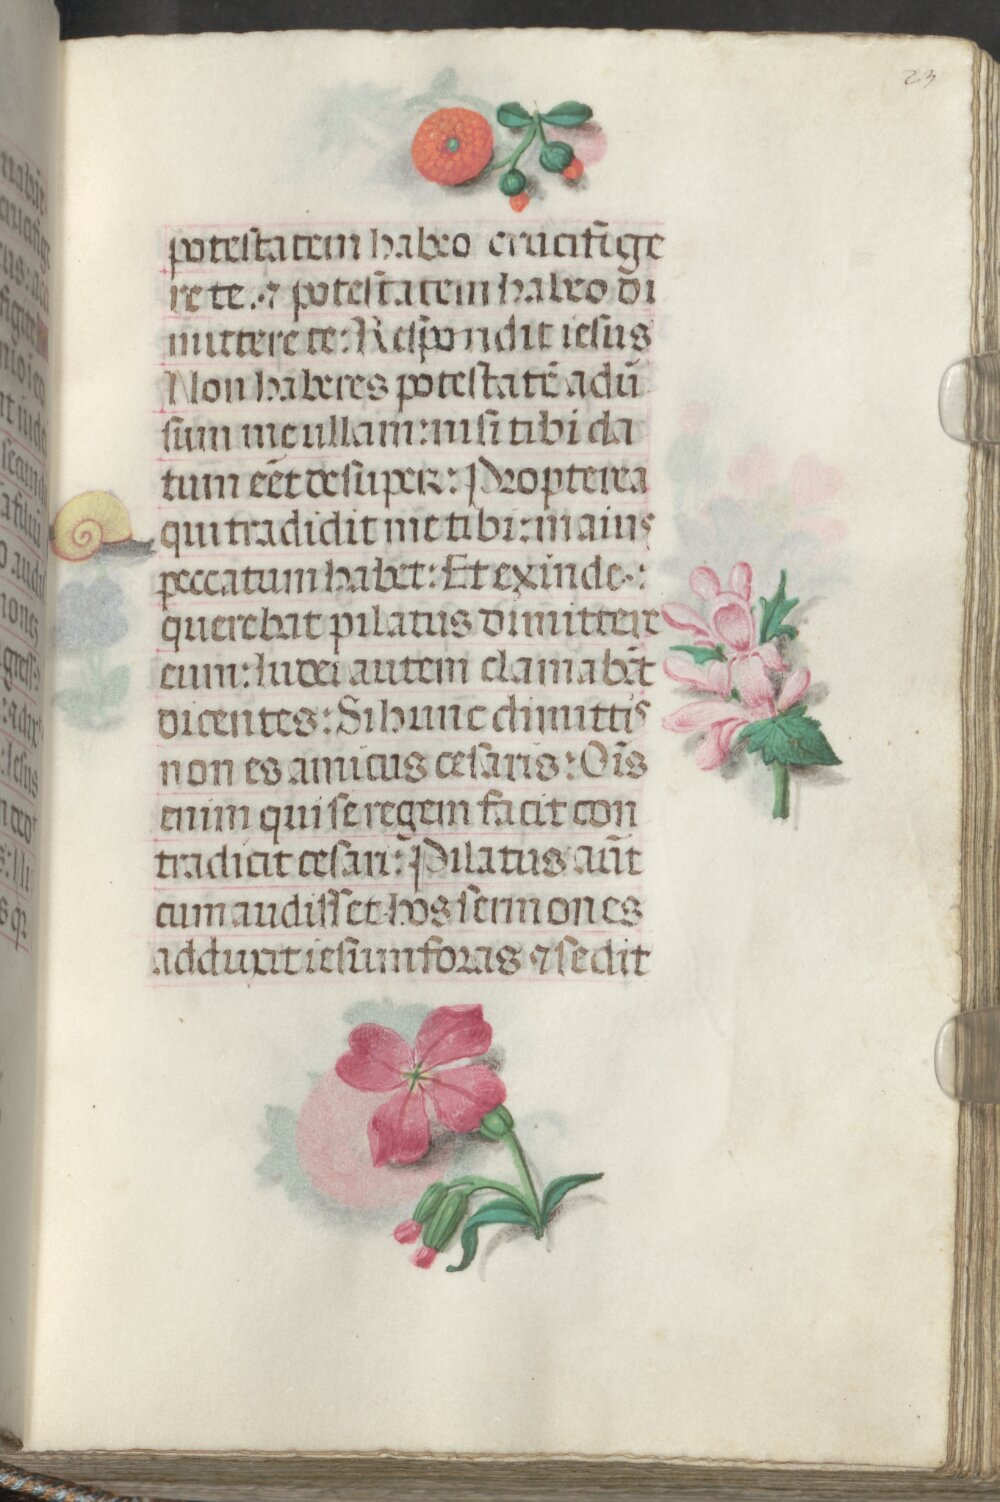 23
potestatem habeo crucifige
re te. ⁊ potestatem habeo di
mittere te: Respondit iesus
Non haberes potestatē adũ
sum me ullam: nisi tibi da
tum eẽt desuper: Propterea
qui tradidit me tibi: maius
peccatum habet: Et exinde.:
querebat pilatus dimittere
eum: Iudei autem clamabãt
dicentes: Si hunc dimittis
non es amicus cesaris: Oĩs
enim qui se regem facit con
tradicit cesari: Pilatus aũt
cum audisset hos sermones
adduxit iesum foras ⁊ sedit